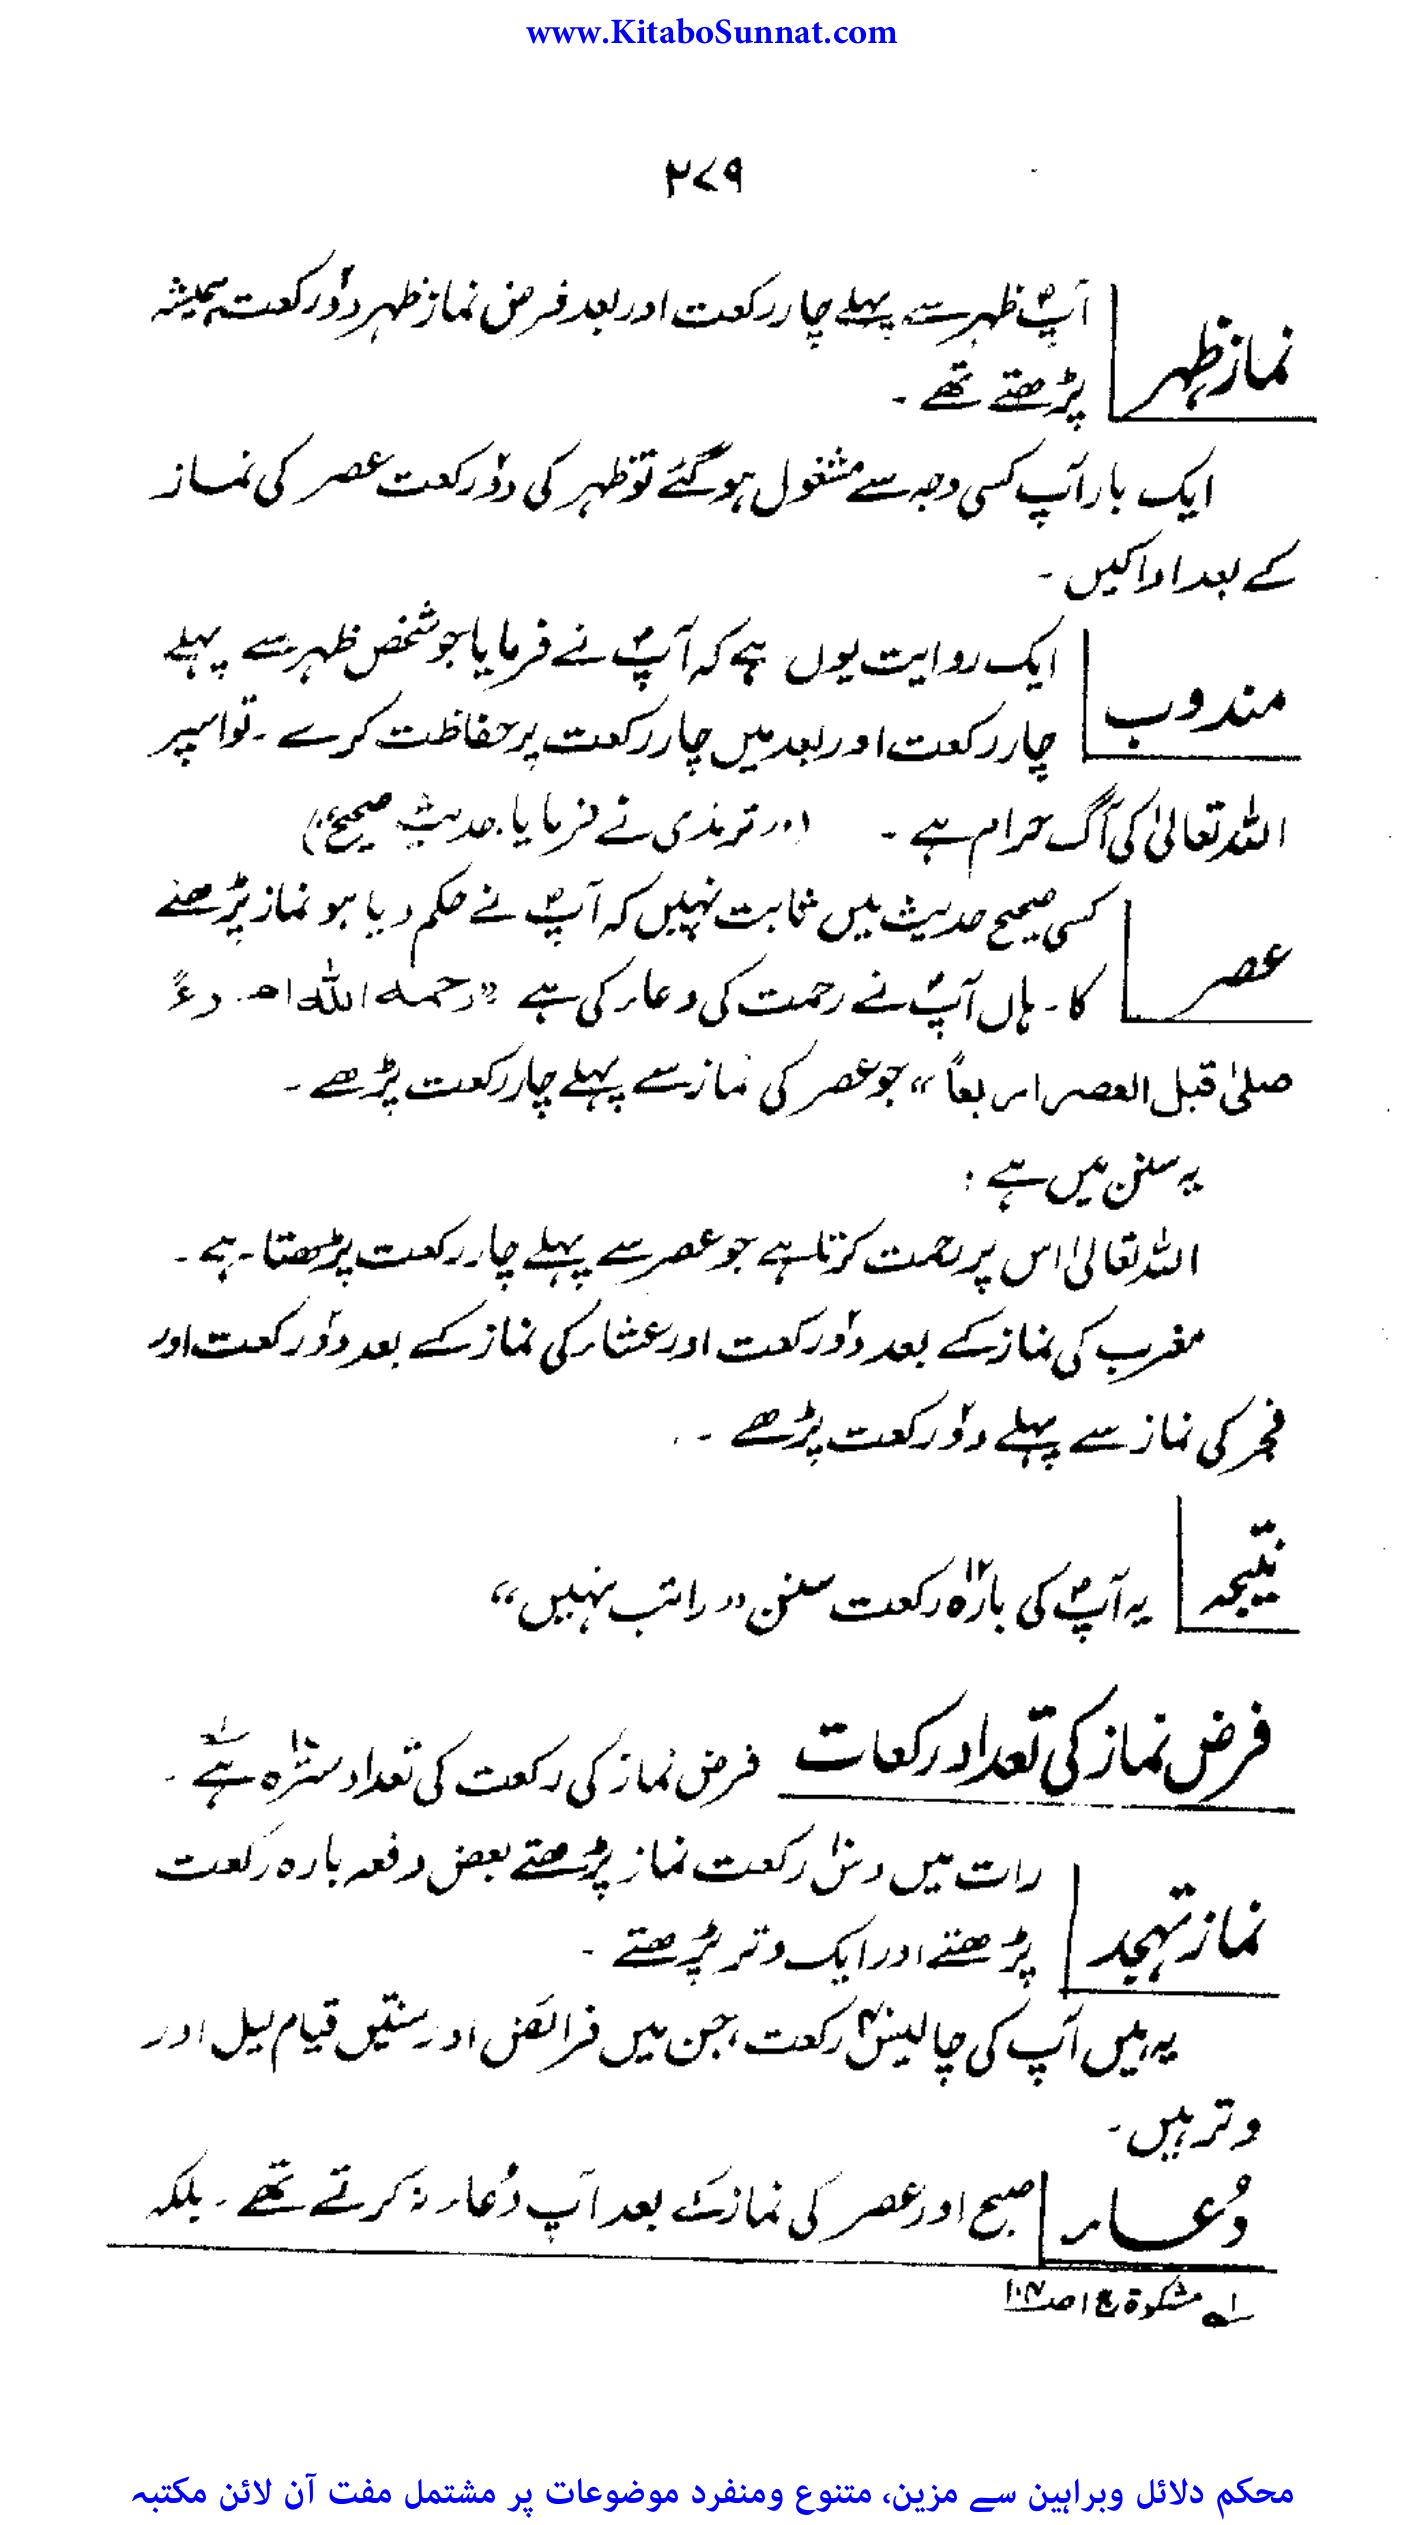 www.KitaboSunnat.com
۲۷۹
نماز ظہر
آپؐ ظہر سے پہلے چار رکعت اور بعد فرض نماز ظہر دو۲ رکعت ہمیشہ
پڑھتے تھے ۔
ایک بار آپ کسی وجہ سے مشغول ہو گئے تو ظہر کی دو۲ رکعت عصر کی نماز
کے بعد ادا کیں ۔
مندوب
ایک روایت یوں ہے کہ آپؐ نے فرمایا جو شخص ظہر سے پہلے
چار رکعت اور بعد میں چار رکعت پر حفاظت کرے ۔ تو اسپر
اللہ تعالیٰ کی آگ حرام ہے ۔ (اور ترمذی نے فرمایا، حدیث صحیح ہے)
عصر
کسی صحیح حدیث میں ثابت نہیں کہ آپؐ نے حکم دیا ہو نماز پڑھنے
کا ۔ ہاں آپؐ نے رحمت کی دعاء کی ہے "رحمہ اللہ امرءً
صلیٰ قبل العصر اربعاً" جو عصر کی نماز سے پہلے چار رکعت پڑھے ۔
یہ سنن میں ہے :
اللہ تعالیٰ اس پر رحمت کرتا ہے جو عصر سے پہلے چار رکعت پڑھتا ہے ۔
مغرب کی نماز کے بعد دو۲ رکعت اور عشاء کی نماز کے بعد دو۲ رکعت اور
فجر کی نماز سے پہلے دو۲ رکعت پڑھے ۔
نتیجہ
یہ آپؐ کی بارہ۱۲ رکعت سنن "راتب نہیں"
فرض نماز کی تعداد رکعات
فرض نماز کی رکعت کی تعداد سترہ۱۷ ہے ۱؎ ۔
نماز تہجد
رات میں دس۱۰ رکعت نماز پڑھتے بعض دفعہ بارہ رکعت
پڑھتے اور ایک وتر پڑھتے ۔
یہ ہیں آپ کی چالیس۴۰ رکعت، جن میں فرائض اور سنتیں قیام لیل اور
وتر ہیں ۔
دُعاء
صبح اور عصر کی نماز کے بعد آپ دُعاء نہ کرتے تھے ۔ بلکہ
۱؎ مشکوٰۃ ج ۱ ص۱۰۴
محکم دلائل وبراہین سے مزین، متنوع ومنفرد موضوعات پر مشتمل مفت آن لائن مکتبہ